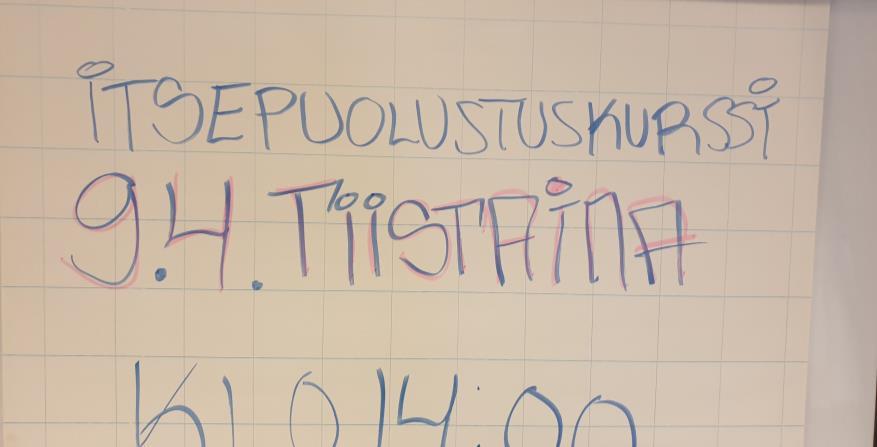 iTSEPUOLUSTUSKURSSi
9.4. TiiSTAiNA
KLO 14:00